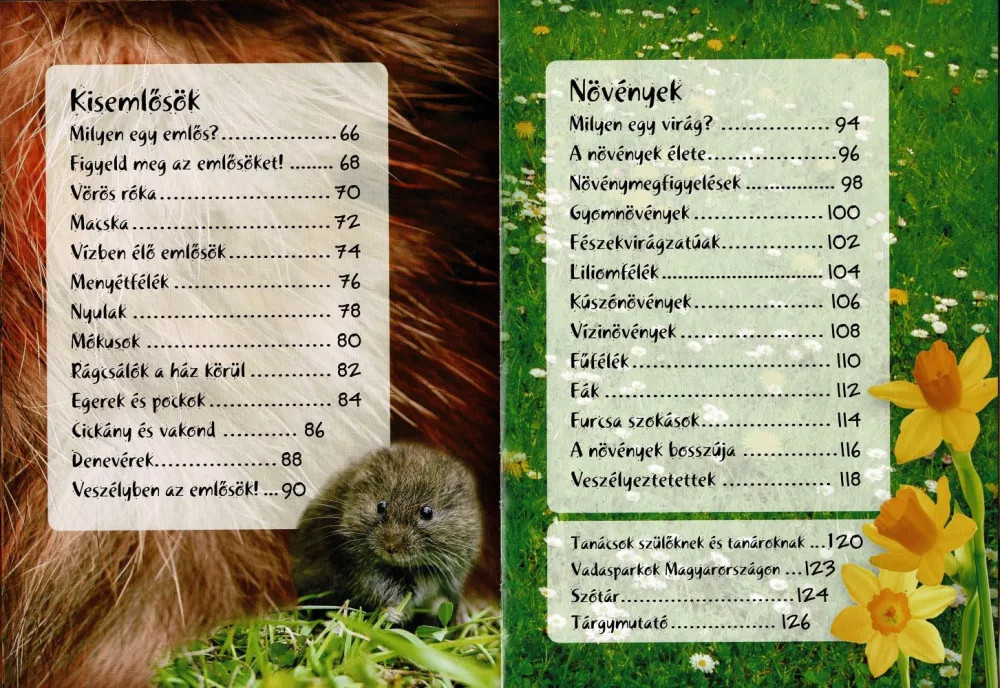 Kisemlősök
Milyen egy emlős?......................66
Figyeld meg az emlősöket! ........68
Vörös róka..............................70
Macska...................................72
Vízben élő emlősök..................74
Menyétfélék............................76
Nyulak ...................................78
Mókusok ................................80
Rágcsálók a ház körül ..............82
Egerek és pockok.....................84
Cickány és vakond ...........86
Denevérek.....................88
Veszélyben az emlősök! ...90
Növények
Milyen egy virág? ....................94
A növények élete.......................96
Növénymegfigyelések ................98
Gyomnövények.......................100
Fészekvirágzatúak...................102
Liliomfélék..............................104
Kúszónövények.......................106
Vízinövények..........................108
Fűfélék ..................................110
Fák .......................................112
Furcsa szokások......................114
A növények bosszúja ...............116
Veszélyeztetettek ...................118
Tanácsok szülőknek és tanároknak ...120
Vadasparkok Magyarországon ...123
Szótár................................124
Tárgymutató...................126